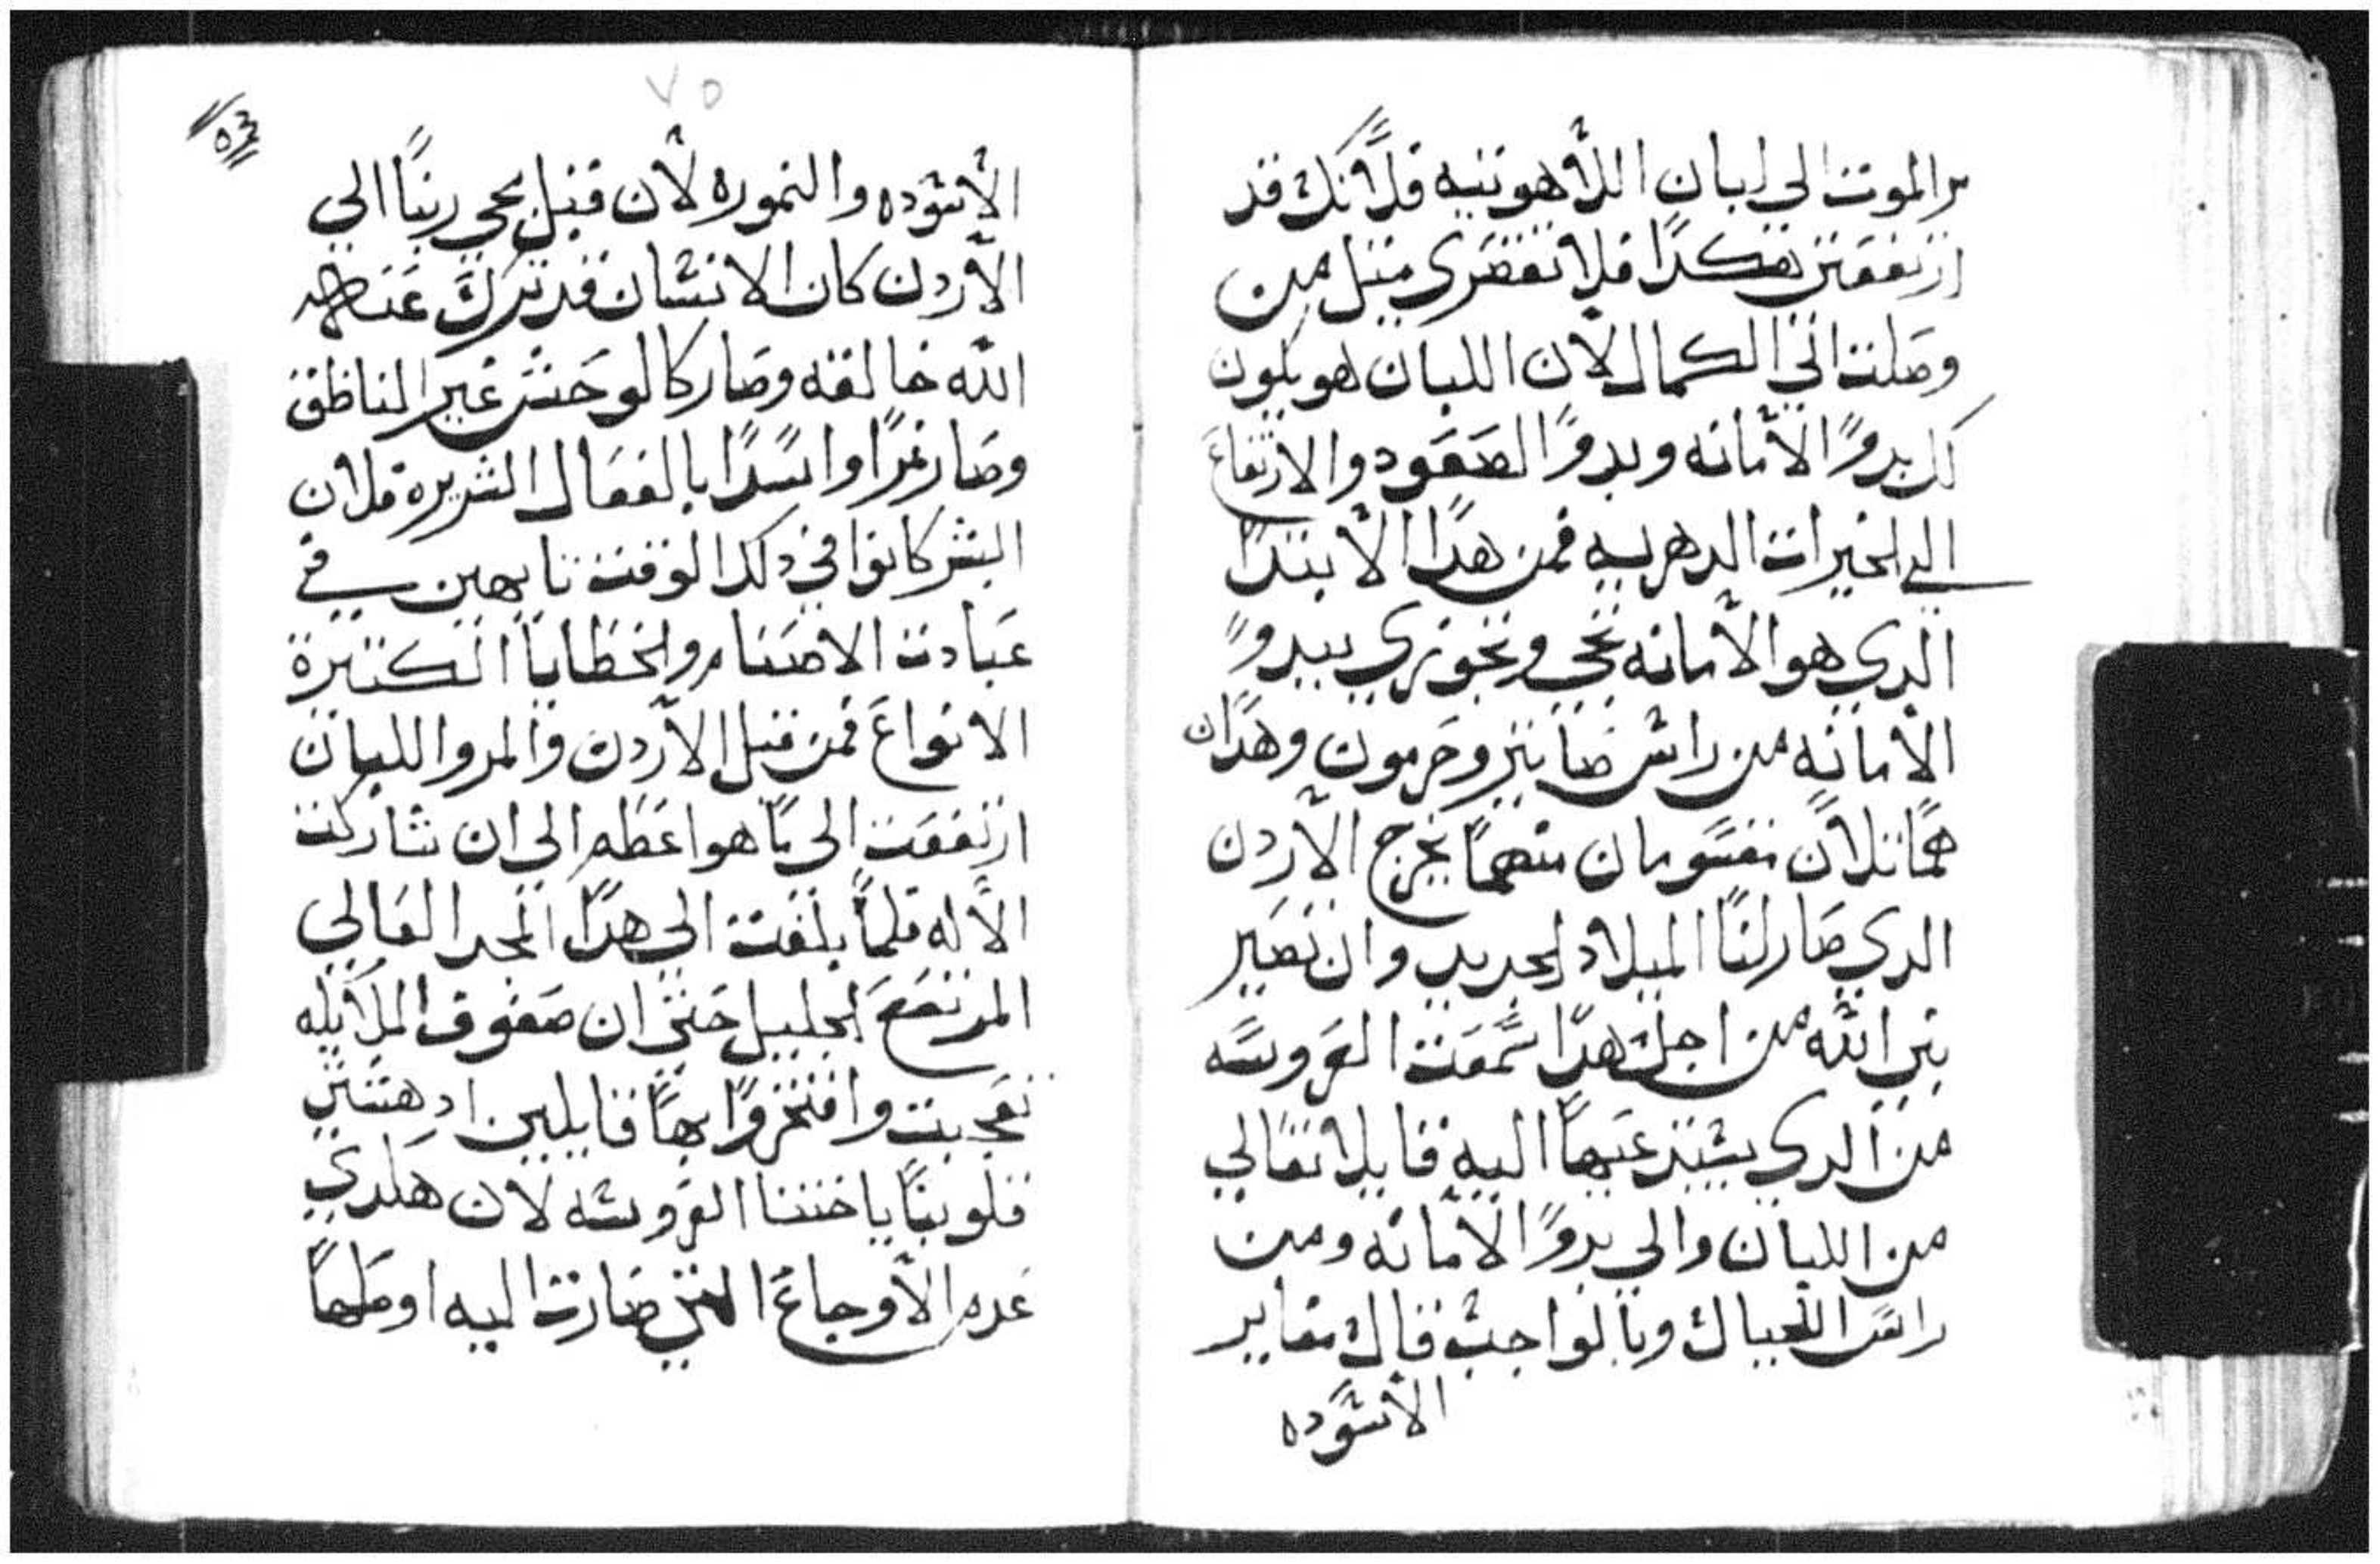 مر الموت الي لبان اللاهوتيه فلانك قد
ارتفعتي هكدا فلا تقصري مثل من
وصلت الي الكمال لان اللبان هو يكون
كل بدوًا الامانه وبدوًا الصعود والارتفاع
الي الخيرات الدهريه فمن هدا الابتدا
الدي هو الامانه تجي وتجوزي ببدوًا
الامانه من راس صانير وحرمون وهدان
هما تلان مقسومان منهما يخرج الاردن
الدي صار لنا الميلاد الجديد وان نصير
بني الله من اجل هدا سمعت العروسه
من الدي يشير عنها اليه قايلا تعالي
من اللبان والي بدوًا الامانه ومن
راس الجبال وبالواجب قال مغاير
الاسوده
٧٥
٥٣
الاسوده والنموره لان قبل مجي ربنا الي
الاردن كان الانسان قد ترك عنه
الله خالقه وصار كالوحش غير الناطق
وصار نمرًا واسدًا بالفعال الشريره فلان
البشر كانوا في دلك الوقت تايهين في
عبادت الاصنام والخطايا الكثيرة
الانواع فمن قبل الاردن والمر واللبان
ارتفعت الي ما هو اعظم الي ان شاركت
الاله فلما بلغت الي هدا المجد العالي
المرتفع الجليل حتي ان صفوف الملايكه
تعجبت وافتخروا بها قايلين ادهشتي
قلوبنا يا اختنا العروسه لان هكدي
عدم الاوجاع التي صارت اليه اوصلها